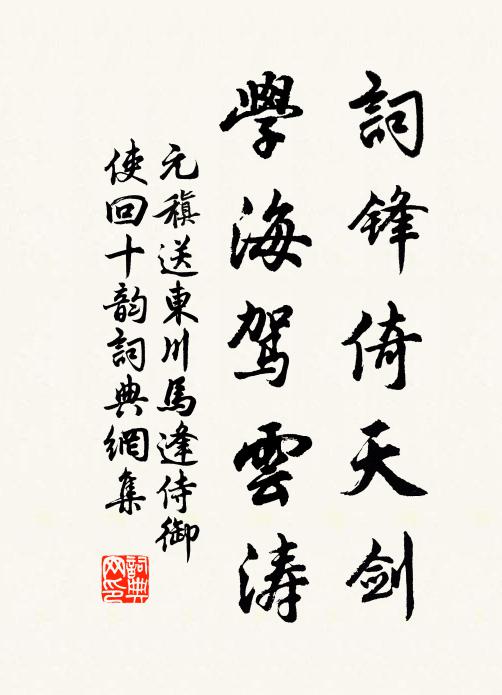 詞锋倚天剑
學海駕雲涛
元稹送東川馬逢侍御
使回十韵詞典網集
詞典
网印